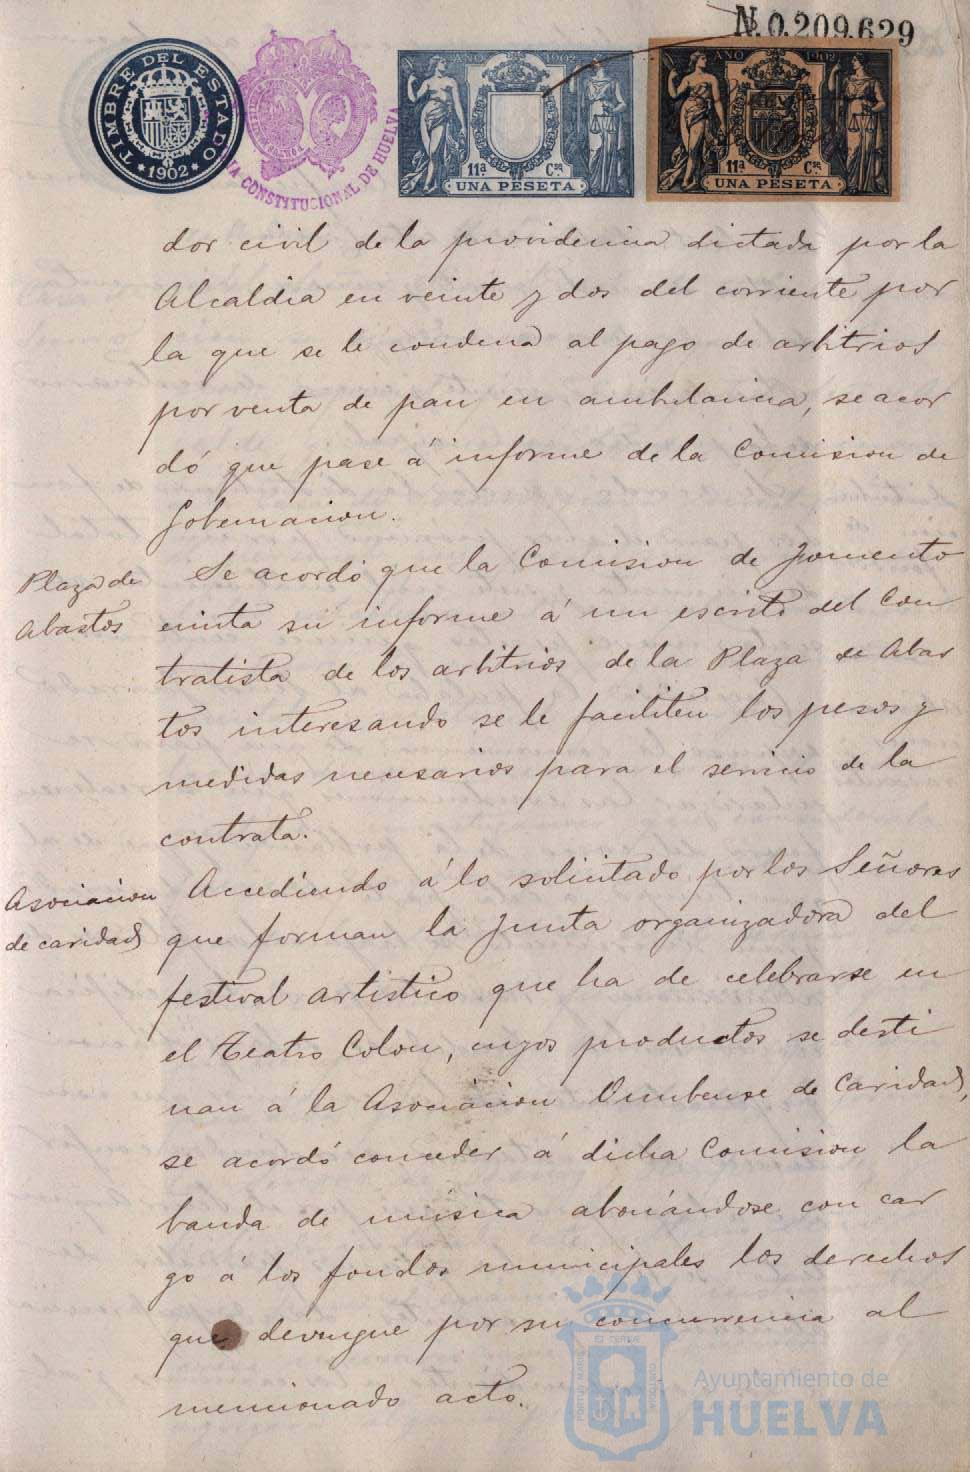 N. 0.209,629
TIMBRE DEL ESTADO
*1902*
CONSTITUCIONAL DE HUELVA
AÑO 1902
11ª Cse
UNA PESETA
AÑO 1902
11ª Cse
UNA PESETA
dor civil de la providencia dictada por la
Alcaldia en veinte y dos del corriente por
la que se le condena al pago de arbitrios
por venta de pan en ambulancia, se acor
dó que pase á informe de la Comision de
Gobernacion.
Plaza de
Abastos
Se acordó que la Comision de Fomento
emita su informe á un escrito del Con
tratista de los arbitrios de la Plaza de Abas
tos interesando se le faciliten los pesos y
medidas necesarios para el servicio de la
contrata.
Asociacion
de caridad
Accediendo á lo solicitado por los Señores
que forman la Junta organizadora del
festival artistico que ha de celebrarse en
el Teatro Colon, cuyos productos se desti
nan á la Asociacion Onubense de Caridad,
se acordó conceder á dicha Comision la
banda de música abonándose con car
go á los fondos municipales los derechos
que devengue por su concurrencia al
mencionado acto.
Ayuntamiento de
HUELVA